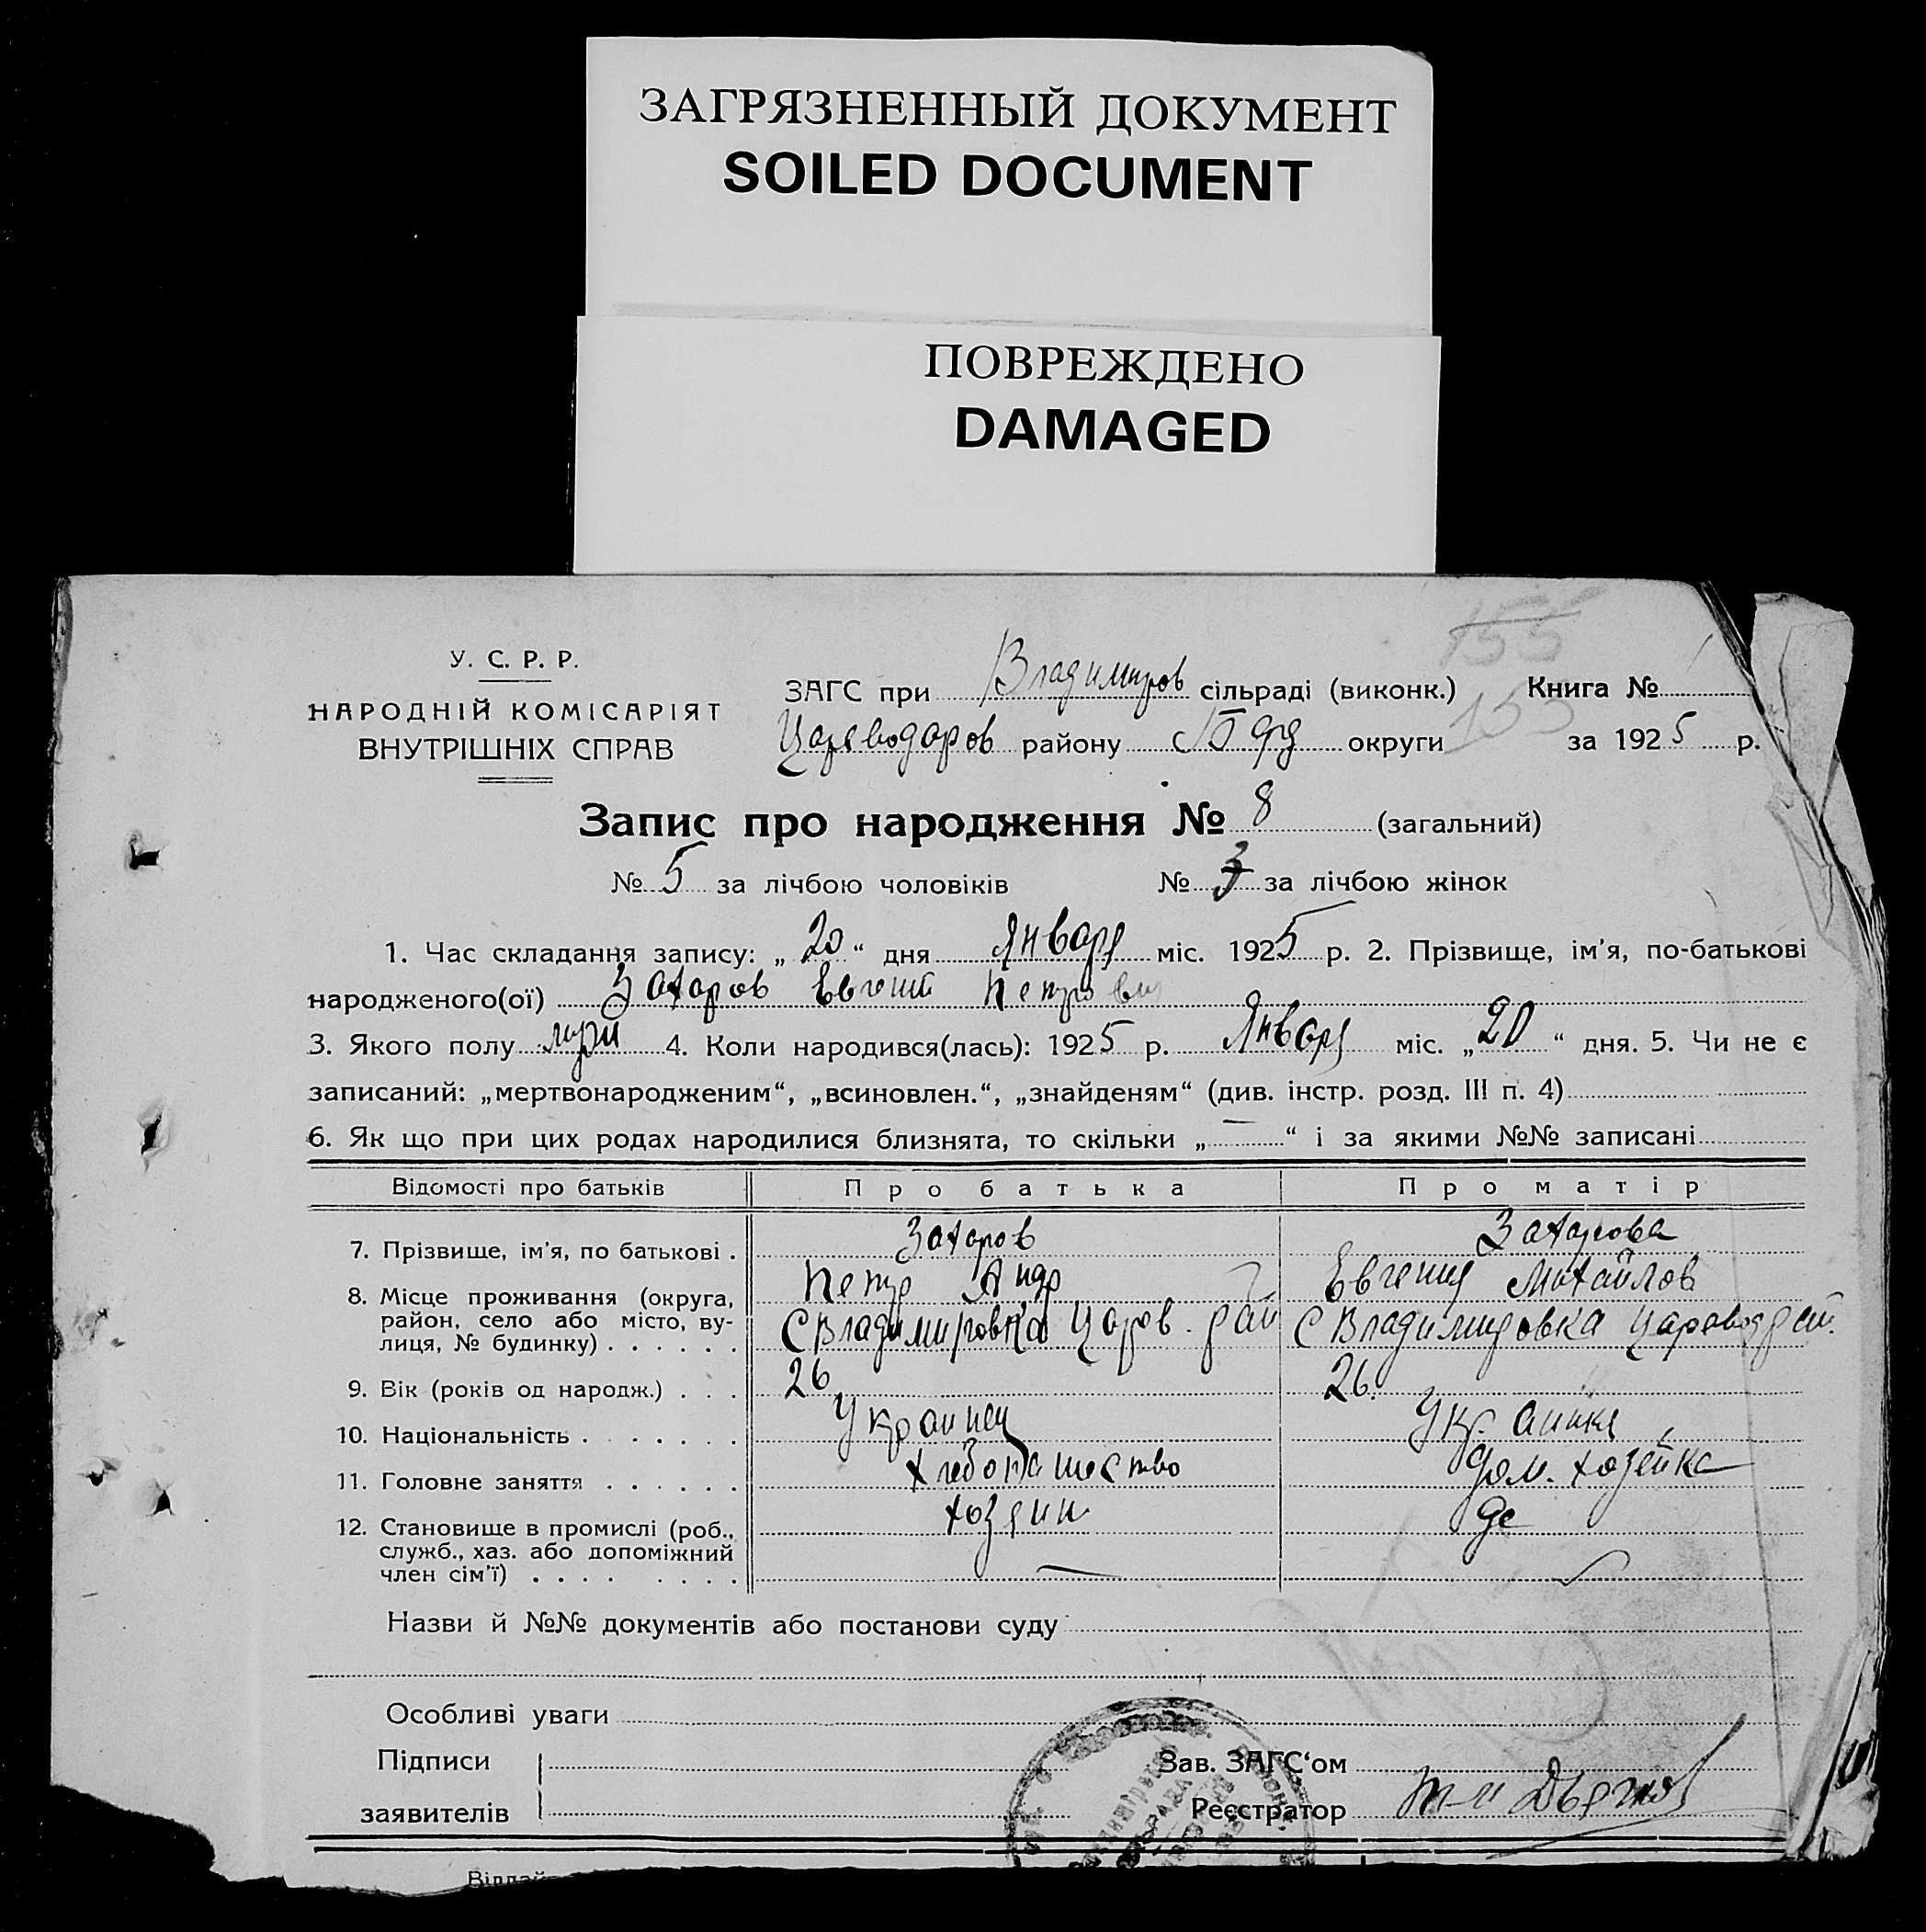 ЗАГРЯЗНЕННЫЙ ДОКУМЕНТ
SOILED DOCUMENT
ПОВРЕЖДЕНО
DAMAGED
155
У. С. Р. Р.
НАРОДНІЙ КОМІСАРІЯТ
ВНУТРІШНІХ СПРАВ
ЗАГС при Владимиров сільраді (виконк.) Книга №
Цареводаров району округи 155 за 1925 р.
Запис про народження № 8 (загальний)
№ 5 за лічбою чоловіків № 3 за лічбою жінок
1. Час складання запису: „20“ дня Января міс. 1925 р. 2. Прізвище, ім'я, по-батькові
народженого(ої) Захаров Евгений Петрович
3. Якого полу муж 4. Коли народився(лась): 1925 р. Января міс. „20“ дня. 5. Чи не є
записаний: „мертвонародженим“, „всиновлен.“, „знайденям“ (див. інстр. розд. III п. 4)
6. Як що при цих родах народилися близнята, то скільки „—“ і за якими №№ записані
Відомості про батьків Про батька Про матір
7. Прізвище, ім'я, по батькові . Захаров Захарова
Петр Андр Евгения Михайлов
8. Місце проживання (округа, район, село або місто, вулиця, № будинку) . . . . . . с Владимировка Царов. рай с Владимировка Царевод рай.
9. Вік (років од народж.) . . . 26 26.
10. Національність . . . . . . . Украинец Украинка
11. Головне заняття . . . . . . хлебопашество дом. хозейка
12. Становище в промислі (роб., хозяин де
служб., хаз. або допоміжний
член сім'ї) . . . . . . . .
Назви й №№ документів або постанови суду
Особливі уваги
Підписи Зав. ЗАГС'ом
заявителів Реєстратор